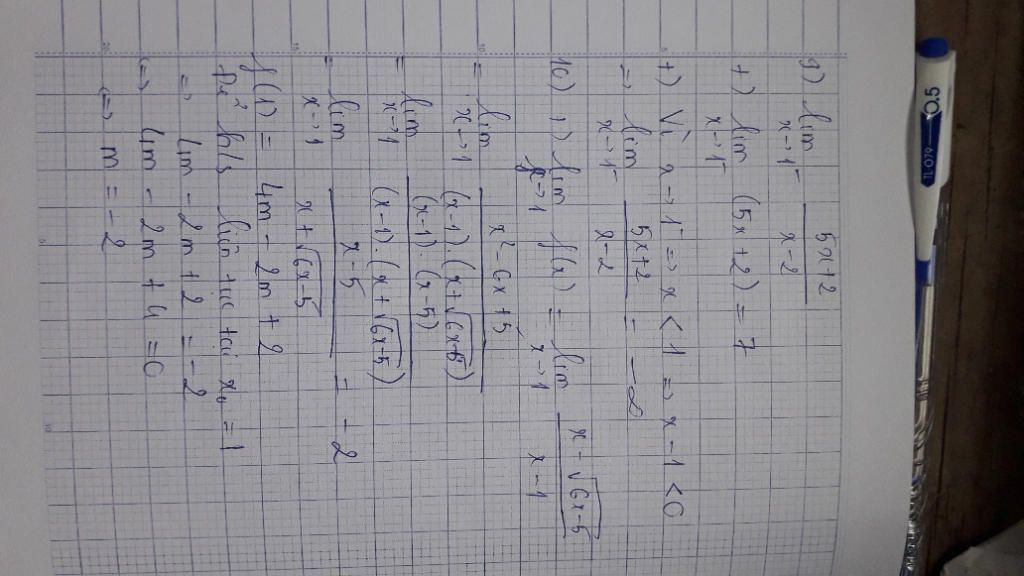 9) lim x→1⁻ (5x+2)/(x-2)
+) lim x→1⁻ (5x+2) = 7
+) Vì x→1⁻ => x < 1 => x-1 < 0
=> lim x→1⁻ (5x+2)/(x-2) = -∞
10) +) lim x→1 f(x) = lim x→1 (x-√(6x-5))/(x-1)
= lim x→1 (x²-6x+5)/((x-1).(x+√(6x-5)))
= lim x→1 ((x-1).(x-5))/((x-1).(x+√(6x-5)))
= lim x→1 (x-5)/(x+√(6x-5)) = -2
f(1) = 4m - 2m + 2
Để h/s liên tục tại x₀ = 1
=> 4m - 2m + 2 = -2
(=) 4m - 2m + 4 = 0
(=) m = -2
0.5
TL 079